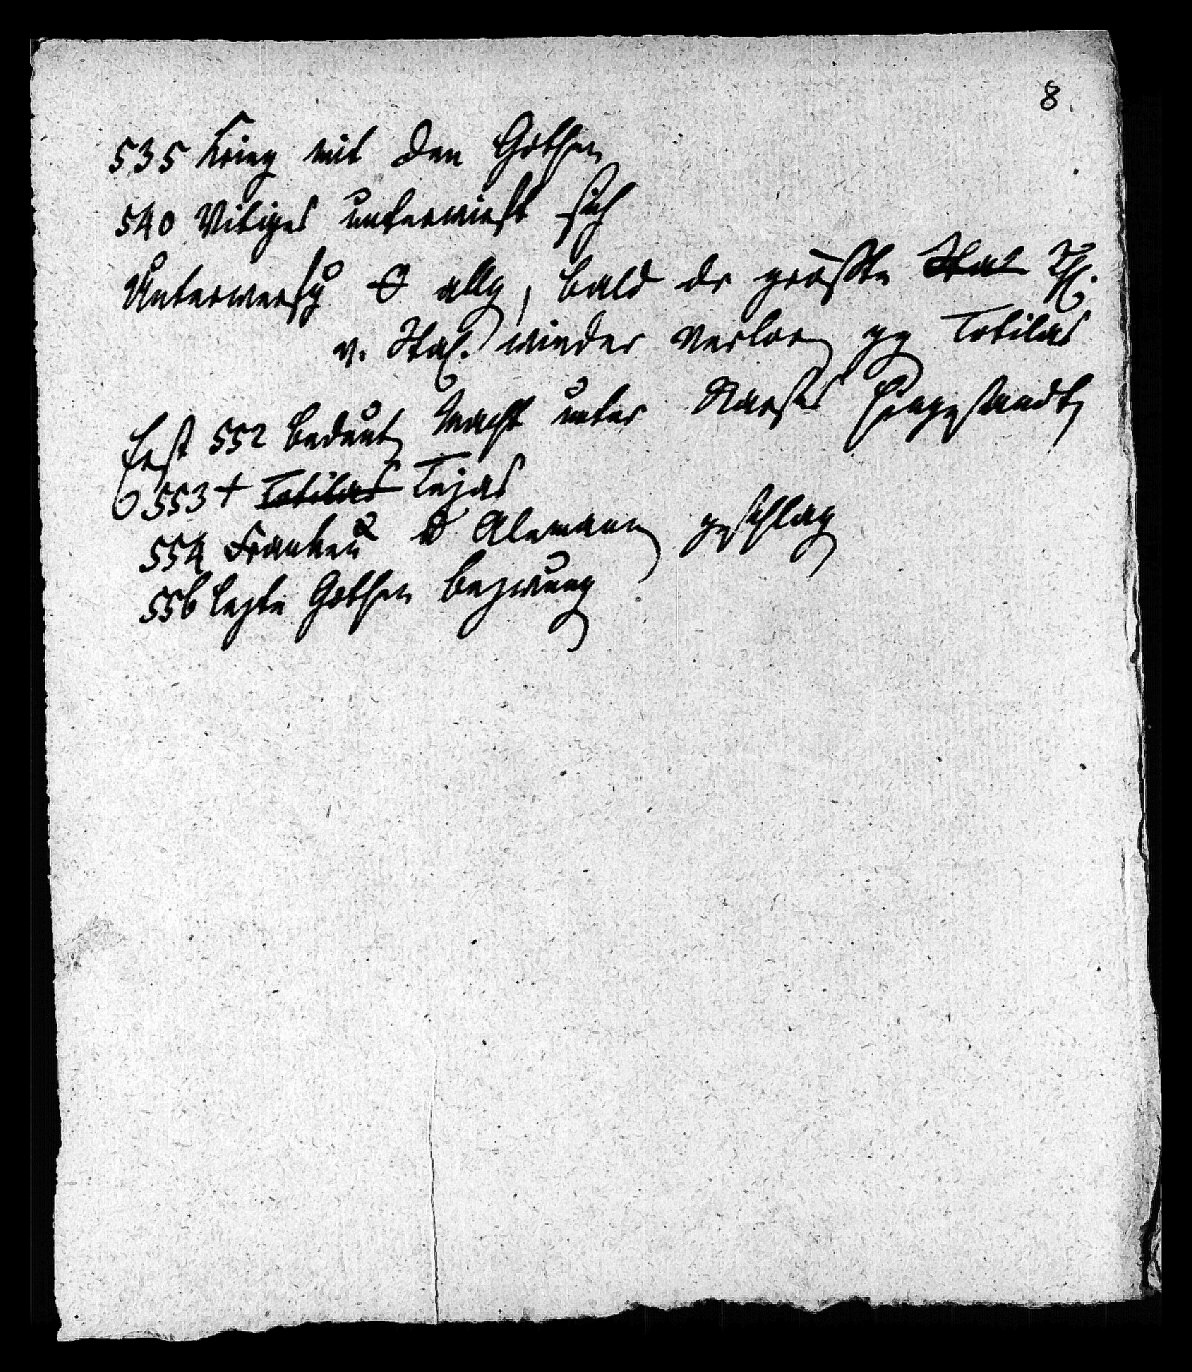 8.
535 Krieg mit den Gothen
540 Vitiges unterwirft sich
Unterwerfg allg, bald dr größte Ital Th.
v. Ital. wieder verlorn gg Totilas
Erst 552 bedeut Macht unter Narses hingesandt
553 + Totilas Tejas
554 Franken u Alemann geschlag
556 lezte Gothen bezwung